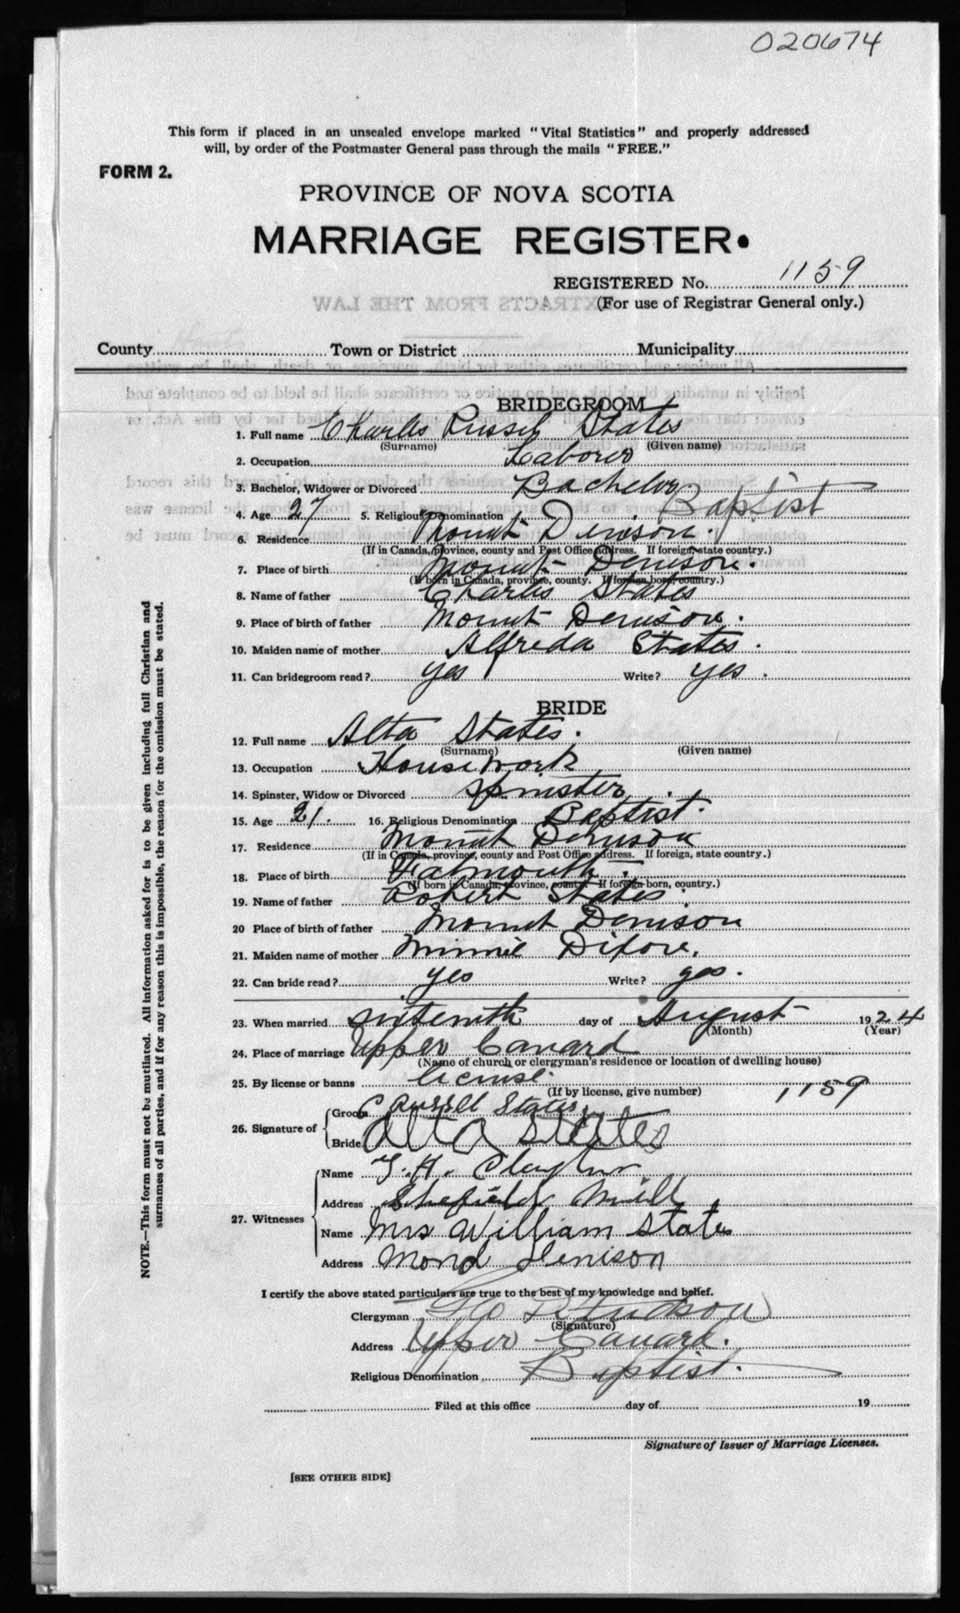 020674
This form if placed in an unsealed envelope marked "Vital Statistics" and properly addressed
will, by order of the Postmaster General pass through the mails "FREE."
FORM 2.
PROVINCE OF NOVA SCOTIA
MARRIAGE REGISTER.
REGISTERED No. 1159
(For use of Registrar General only.)
EXTRACTS FROM THE LAW
County Town or District Municipality
BRIDEGROOM
1. Full name Charles Russel States
(Surname) (Given name)
2. Occupation Laborer
3. Bachelor, Widower or Divorced Bachelor
4. Age 27 5. Religious Denomination Baptist
6. Residence Mount Denison.
(If in Canada, province, county and Post Office address. If foreign, state country.)
7. Place of birth Mount Denison.
(If born in Canada, province, county. If foreign born, country.)
8. Name of father Charles States
9. Place of birth of father Mount Denison.
10. Maiden name of mother Alfreda States.
11. Can bridegroom read? yes Write? yes.
BRIDE
12. Full name Alta States.
(Surname) (Given name)
13. Occupation Housework
14. Spinster, Widow or Divorced Spinster
15. Age 21. 16. Religious Denomination Baptist.
17. Residence Mount Denison
(If in Canada, province, county and Post Office address. If foreign, state country.)
18. Place of birth Falmouth.
(If born in Canada, province, county. If foreign-born, country.)
19. Name of father Robert States
20 Place of birth of father Mount Denison
21. Maiden name of mother Minnie Dixon.
22. Can bride read? yes Write? yes.
23. When married sixteenth day of August 1924
(Month) (Year)
24. Place of marriage Upper Canard
(Name of church or clergyman's residence or location of dwelling house)
25. By license or banns license.
(If by license, give number) 1159
26. Signature of
Groom C Russell States
Bride Alta States
27. Witnesses
Name
Address Shefield Mill
Name Mrs William State
Address Mond Denison
I certify the above stated particulars are true to the best of my knowledge and belief.
Clergyman
(Signature)
Address Upper Canard.
Religious Denomination Baptist.
Filed at this office day of 19
Signature of Issuer of Marriage Licenses.
[SEE OTHER SIDE]
NOTE.—This form must not be mutilated. All information asked for is to be given including full Christian and
surnames of all parties, and if for any reason this is impossible, the reason for the omission must be stated.